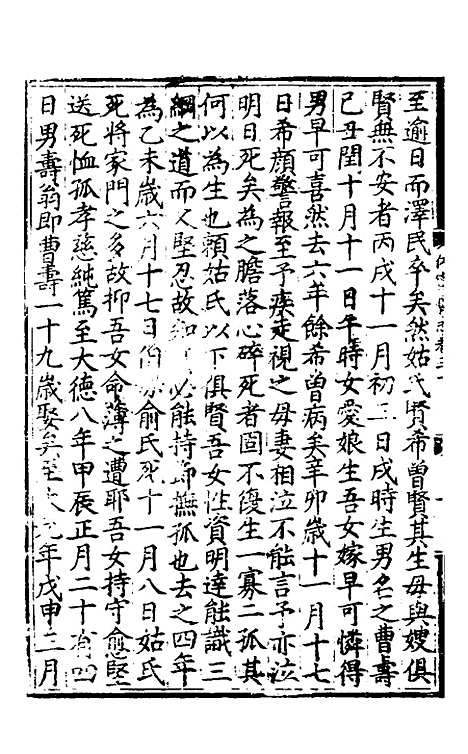 至逾日而澤民卒矣然姑氏賢希曾賢其生母與嫂俱
賢無不安者丙戌十一月初二日戌時生男名之曹壽
己丑閏十月十一日午時女愛娘生吾女嫁早可憐得
男早可喜然去六年餘希曾病矣辛卯歲十一月十七
日希顏警報至予疾走視之母妻相泣不能言予亦泣
明日死矣為之膽落心碎死者固不復生一寡二孤其
何以為生也賴姑氏以下俱賢吾女性資明達能識三
綱之道而又堅忍故知必能持節撫孤也去之四年
為乙未歲六月十七日伯俞氏死十一月八日姑氏
死將家門之多故抑吾女命薄之遭耶吾女持守愈堅
送死恤孤孝慈純篤至大德八年甲辰正月二十四
日男壽翁即曹壽一十九歲娶矣至年戊申二月